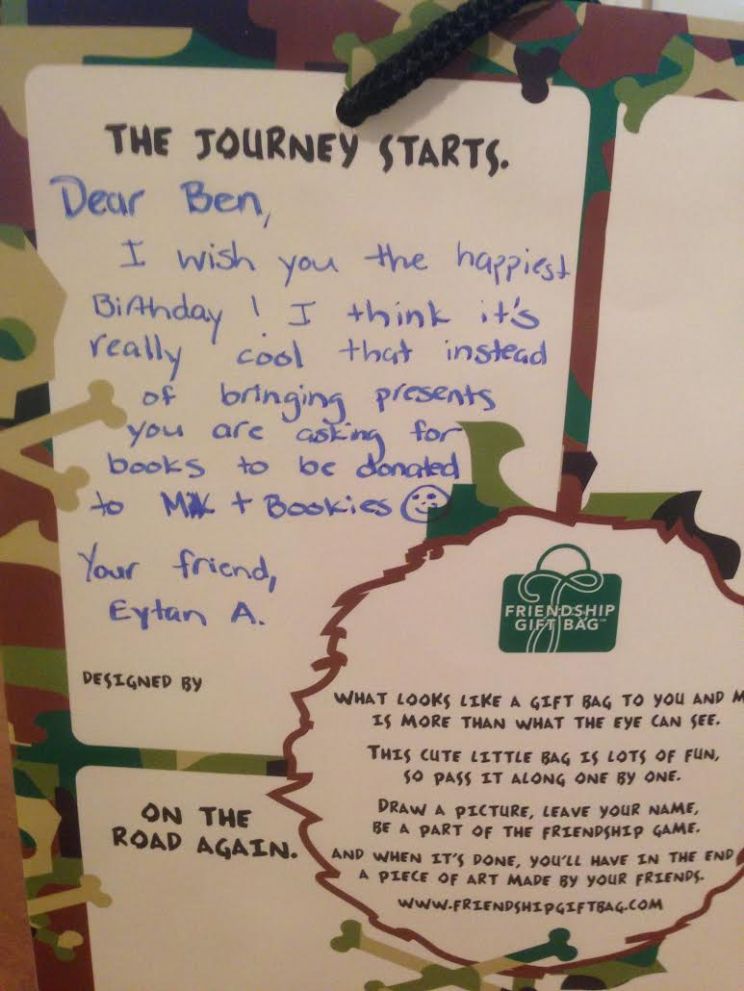 THE JOURNEY STARTS.
Dear Ben,
I wish you the happiest
Birthday ! I think it's
really cool that instead
of bringing presents
you are asking for
books to be donated
to Milk + Bookies
Your friend,
Eytan A.
DESIGNED BY
ON THE
ROAD AGAIN.
FRIENDSHIP
GIFT BAG™
WHAT LOOKS LIKE A GIFT BAG TO YOU AND M
IS MORE THAN WHAT THE EYE CAN SEE.
THIS CUTE LITTLE BAG IS LOTS OF FUN,
SO PASS IT ALONG ONE BY ONE.
DRAW A PICTURE, LEAVE YOUR NAME,
BE A PART OF THE FRIENDSHIP GAME.
AND WHEN IT'S DONE, YOU'LL HAVE IN THE END
A PIECE OF ART MADE BY YOUR FRIENDS.
WWW.FRIENDSHIPGIFTBAG.COM